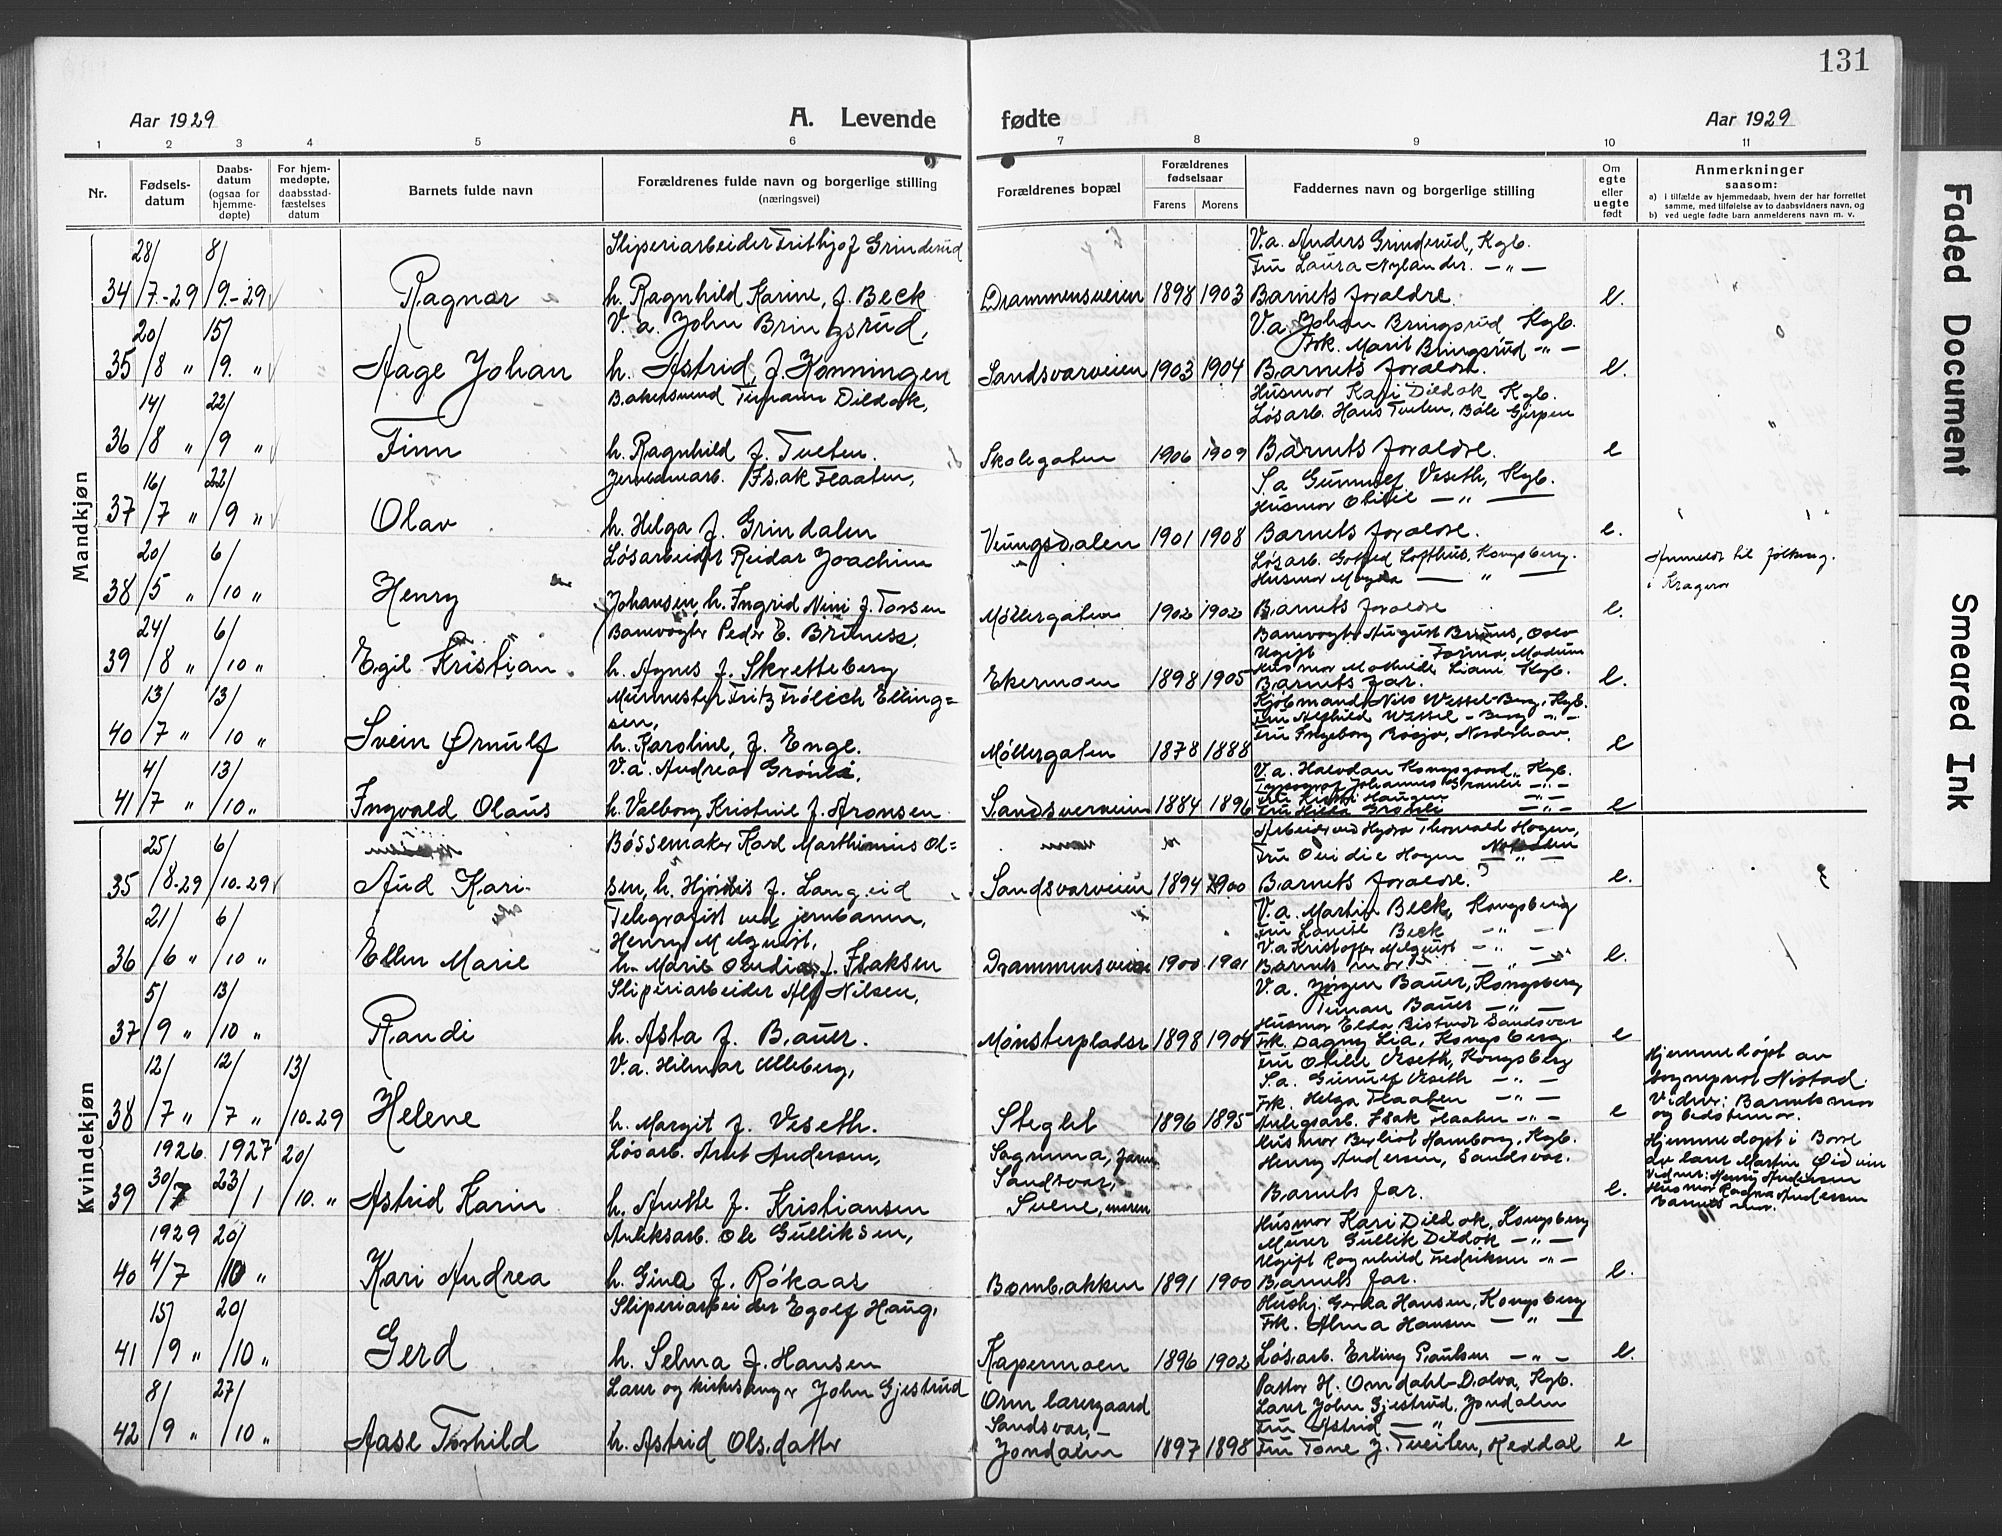 131
Aar 1929
A. Levende fødte
Aar 1929
1 2 3 4 5 6 7 8 9 10 11
Nr.
Fødsels-
datum
Daabs-
datum
(ogsaa for
hjemme-
døpte)
For hjem-
medøpte,
daabsstad-
fæstelses
datum
Barnets fulde navn
Forældrenes fulde navn og borgerlige stilling
(næringsvei)
Forældrenes bopæl
Forældrenes
fødselsaar
Farens Morens
Faddernes navn og borgerlige stilling
Om
egte
eller
uegte
født
Anmerkninger
saasom:
a) i tilfælde av hjemmedaab, hvem der har forrettet
samme, med tilføielse av to daabsvidners navn, og
b) ved uegte fødte barn anmelderens navn m. v.
Mandkjøn
34 28/7-29 8/9-29 Ragnar
Sliperiarbeider Frithjof Grinderud
h. Ragnhild Karine, f. Beck
Drammensveien 1898 1903
V.a. Anders Grinderud, Kgb.
Fru Laura Nylander. — " —
Barnets foraldre.
e.
35 20/8 " 15/9. " Aage Johan
V. a. John Bringsrud,
h. Astrid, f. Kønningen
Sandsvarveien 1903 1904
V.a. Johan Bringsrud Kgb.
Frk. Marit Bringsrud — " —
Barnets foraldre.
e.
36 14/8 " 22/9 " Finn
Bakersvend Dildok,
h. Ragnhild f. Tveten.
Skolegaten 1906 1909
Husmor Kari Dildok Kgb.
Løsarb. Hans Tveten, Bøle Gjerpen
Barnets foraldre.
e
37 16/7 " 22/9 " Olav
Jernbanearb. Isak Flaaten,
h. Helga f. Grindalen
Veungsdalen 1901 1908
S.a Gunnulf Veseth, Kgb.
Husmor Otilie — " —
Barnets foraldre.
e.
38 20/5 " 6/10 " Henry
Løsarbeider Reidar Joachim
Johansen, h. Ingrid Nini f. Torsen
Møllergaten 1902 1902
Løsarb. Gotfred Lofthus, Kongsberg.
Husmor Magda — " —
Barnets foraldre
e.
Anmeldt til folkereg.
i Kragerø
39 24/8 " 6/10 " Egil Kristian.
Banevogter Peder E. Bruness,
h. Agnes f. Skretteberg
Ekermoen 1898 1905
Banevogter August Oslo
Ugift Modum
Husmor Mathilde Liane Kgb.
Barnets far.
e.
40 13/7 " 13/10 " Svein Ørnulf
Murmester Fritz Frölich Elling=
sen,
h. Karoline, f. Enge.
Møllergaten 1878 1888
Kjöbmand Nils Wessel-Berg, Kgb.
Fru Alfhild Wessel-Berg — " —
Fru Ingeborg Røsjø, Nordstrand.
e
41 4/7 " 13/10 " Ingvald Olaus
V.a. Andreas Grönli,
h. Valborg Kristine f. Aronsen
Sandsverveien 1884 1896
V.a. Halvdan Kongsgaard, Kgb.
Typograf Johannes Granlie — " —
Haugen — " —
Fru Hilda Grönli — " —
e
Kvindekjøn
35 25/8-29 6/10-29 Aud Kari.
Bössemaker Karl Marthinius Ol=
sen, h. Hjørdis f. Langeid
Sandsvarveien 1894 1900
Arbeider ved Hydro Thorvald Hagen,
Fru Ovidie Hagen — " —
Barnets foraldre.
e.
36 21/6 " 6/10 " Ellen Marie
Telegrafist ved jernbanen,
Henry Melquist,
h. Marie Ovidia, f. Isaksen
Drammensveien 1900 1901
V.a. Martin Beck, Kongsberg
Fru Louise Beck — " —
V.a Kristoffer Melquist — " —
Barnets mor — " —
e.
37 5/9 " 13/10 " Randi
Sliperiarbeider Alf Nilsen,
h. Asta f. Bauer.
Mønsterpladsen 1898 1904
V.a. Jørgen Bauer, Kongsberg
Bauer — " —
Husmor Elda Sandsvar
Frk. Dagny Lia, Kongsberg.
e
38 12/7 " 12/7 " 13/10-29 Helene
V.a. Hilmar Ulleberg,
h. Margit f. Veseth.
Steglet 1896 1895
Fru Otilie Veseth, Kongsberg
S.a. Gunulf Veseth — " —
Frk. Helga Flaaten — " —
Anlegsarb. Isak Flaaten — " —
e
Hjemmedøpt av
sogneprest Nistad.
Vidner: Barnets mor
og bedstemor.
39 1926. 30/7 1927 23/1 20/10. " Astrid Karin
Løsarb. Arnt Andersen,
h. Anette f. Kristiansen
Sagmma, faren
Sandsvar,
Svene, moren
Husmor Berliot Hamborg, Kgb.
Henry Andersen, Sandsvar.
Barnets far.
e.
Hjemmedøpt i Borre
av lærer Martin
Vidner: Henry Andersen
Husmor Ragna Andersen
Barnets mor.
40 1929 4/7 20/10 " Kari Andrea
Anleksarb. Ole Gulliksen,
h. Gina f. Rökaas
Bombakken 1891 1900
Husmor Kari Dildok, Kongsberg
Murer Gullik Dildok — " —
Ugift Ragnhild Fredriksen — " —
Barnets far.
e.
41 15/9 " 20/10 " Gerd
Sliperiarbeider Egolf Haug,
h. Selma f. Hansen
Kapermoen 1896 1902
Hushj. Gerda Hansen, Kongsberg
Frk. Alma Hansen — " —
Løsarb. Erling Paulsen — " —
e.
42 8/9 " 27/10 " Aase Torhild
Lærer og kirkesanger John Gjestrud
h. Astrid Olsdatter
Orm lærergaard
Sandsvar,
Jondalen 1897 1898
Pastor H. Omdahl-Dalva, Kgb.
Lærer John Gjestrud, Jondalen
Fru Astrid — " —
Fru Tone J. Tveiten, Heddal
e
Faded Document
Smeared Ink